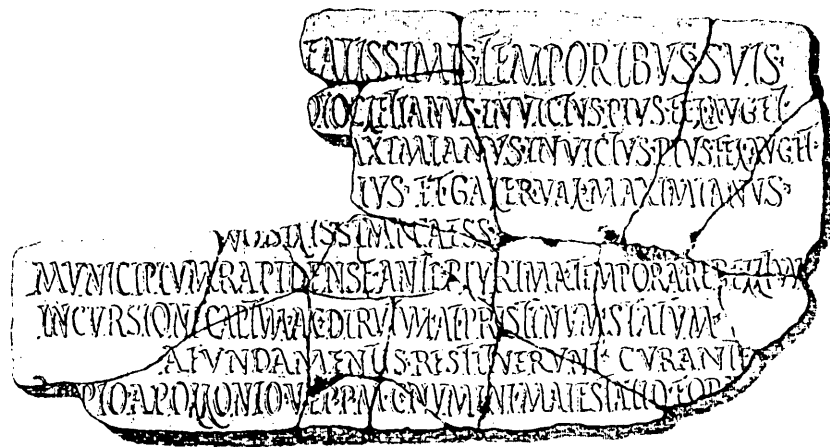 EATISSIMIS·TEMPORIBVS·SVIS·
DIOCLETIANVS·INVICTVS·PIVS·FEL·AVG·ET·
AXIMIANVS·INVICTVS·PIVS·FEL·AVG·ET·
IVS·ET·GALER·VAL·MAXIMIANVS·
NOBILISSIMI·CAESS·
MVNICIPIVM·RAPIDENSE·ANTE·PLVRIMA·TEMPORA·REBELLIVM
INCVRSIONE CAPTVM·AC·DIRVTVM·AT·PRISTINVM·STATVM·
A FVNDAMENTIS·RESTITVERVNT· CVRANTE
PIO·APOLLONIO·V·E·P·P·M·C·NVMINI·MAIESTATIQ·EOR